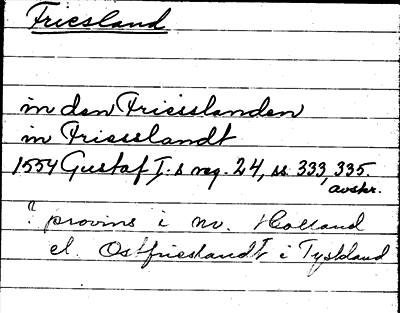 Friesland
in den Friesslanden
in Friesslandt
1554 Gustaf I:s reg. 24, ss 333, 335.
avskr.
? provins i nv. Holland
el. Ostfriesland i Tyskland